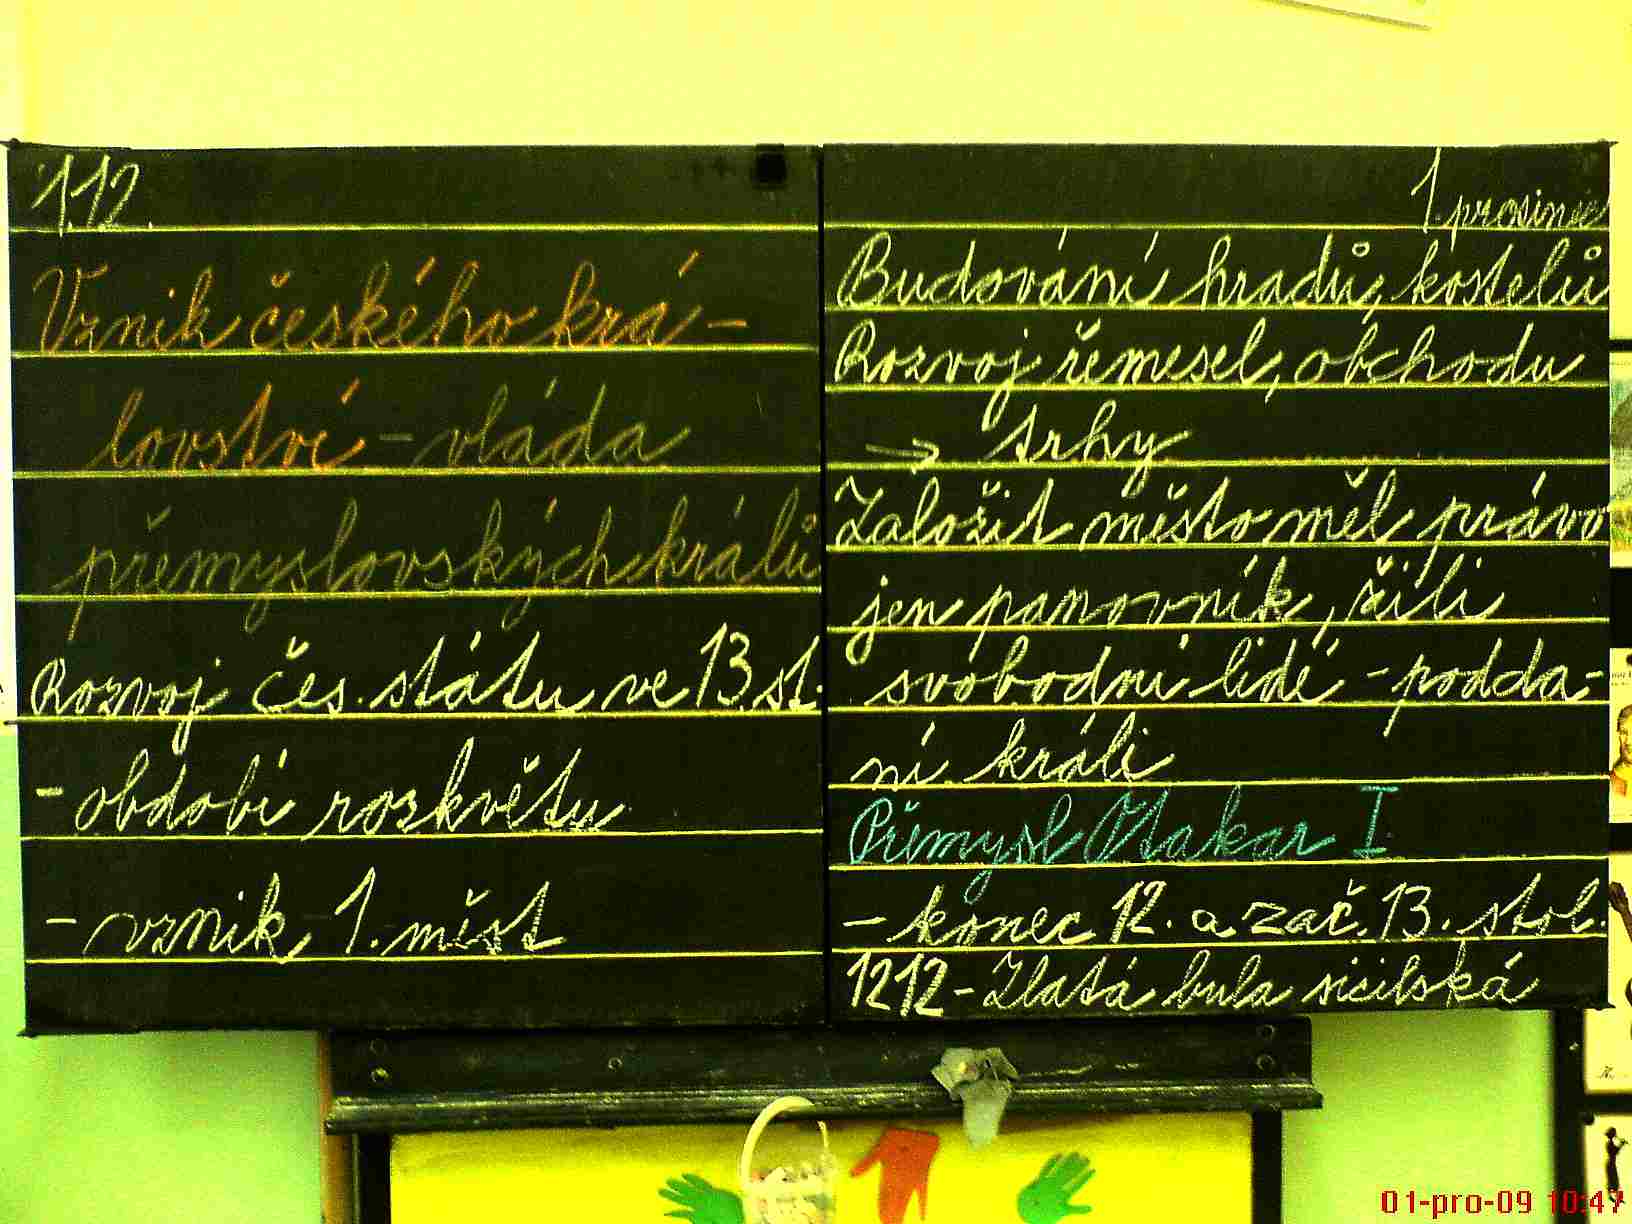 1.12.
Vznik českého krá-
lovství - vláda
přemyslovských králů
Rozvoj čes. státu ve 13. st.
- období rozkvětu
- vznik 1. měst
1. prosinec
Budování hradů, kostelů
Rozvoj řemesel, obchodu
→ trhy
Založit město měl právo
jen panovník, žili
svobodní lidé - podda-
ní králi
Přemysl Otakar I
- konec 12. a zač. 13. stol.
1212 - Zlatá bula sicilská
01-pro-09 10:47